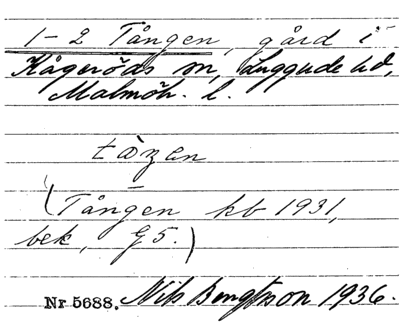 1-2 Tången, gård i
Kågeröds sn, Luggude hd,
Malmöh. l.
tàŋen
(Tången kb 1931,
bek, G5.)
Nr 5688. Nils Bengtsson 1936.